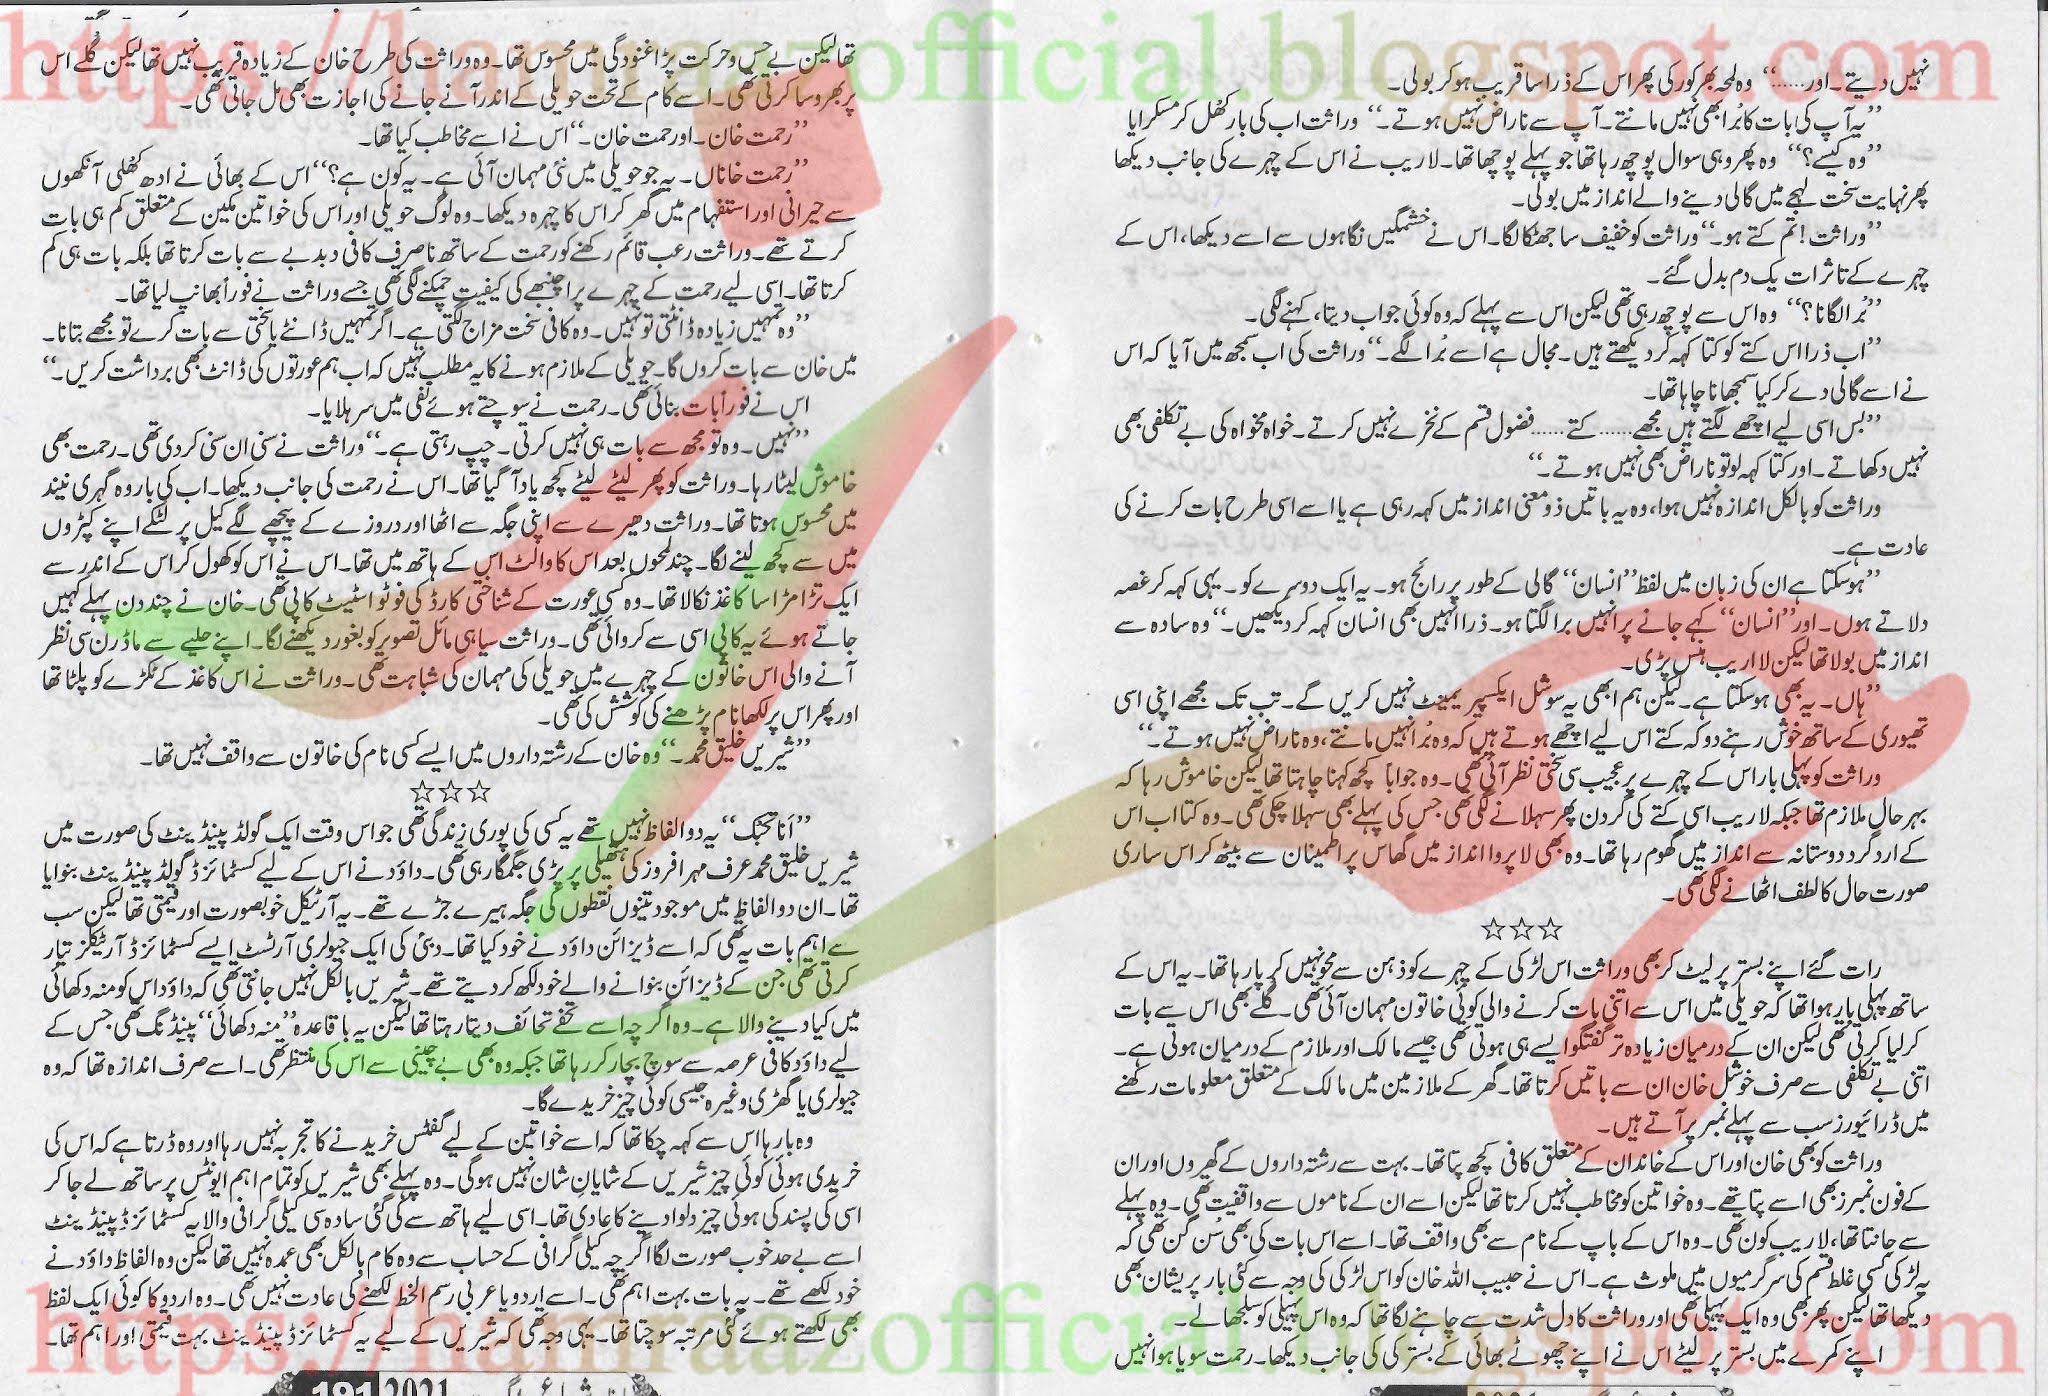 https://hamraazofficial.blogspot.com
نہیں دیتے۔ اور......‘‘ وہ لمحہ بھر کو رکی پھر اس کے ذرا سا قریب ہو کر بولی۔
’’یہ آپ کی بات کا بُرا بھی نہیں مانتے۔ آپ سے ناراض نہیں ہوتے۔‘‘ وراثت اب کی بار کھل کر مسکرایا
’’وہ کیسے؟‘‘ وہ پھر وہی سوال پوچھ رہا تھا جو پہلے پوچھا تھا۔ لاریب نے اس کے چہرے کی جانب دیکھا
پھر نہایت سخت لہجے میں گالی دینے والے انداز میں بولی۔
’’وراثت! تم کتے ہو۔‘‘ وراثت کو خفیف سا جھٹکا لگا۔ اس نے خشمگیں نگاہوں سے اسے دیکھا، اس کے
چہرے کے تاثرات یک دم بدل گئے۔
’’بُرا لگا نا؟‘‘ وہ اس سے پوچھ رہی تھی لیکن اس سے پہلے کہ وہ کوئی جواب دیتا، کہنے لگی۔
’’اب ذرا اس کتے کو کتا کہہ کر دیکھتے ہیں۔ مجال ہے اسے بُرا لگے۔‘‘ وراثت کی اب سمجھ میں آیا کہ اس
نے اسے گالی دے کر کیا سمجھانا چاہا تھا۔
’’بس اسی لیے اچھے لگتے ہیں مجھے...... کتے...... فضول قسم کے نخرے نہیں کرتے۔ خواہ مخواہ کی بے تکلفی بھی
نہیں دکھاتے۔ اور کتا کہہ لو تو ناراض بھی نہیں ہوتے۔‘‘
وراثت کو بالکل اندازہ نہیں ہوا، وہ یہ باتیں ذو معنی انداز میں کہہ رہی ہے یا اسے اسی طرح بات کرنے کی
عادت ہے۔
’’ہو سکتا ہے ان کی زبان میں لفظ ’’انسان‘‘ گالی کے طور پر رائج ہو۔ یہ ایک دوسرے کو۔ یہی کہہ کر غصہ
دلاتے ہوں۔ اور ’’انسان‘‘ کہے جانے پر انہیں برا لگتا ہو۔ ذرا انہیں بھی انسان کہہ کر دیکھیں۔‘‘ وہ سادہ سے
انداز میں بولا تھا لیکن لاریب ہنس پڑی۔
’’ہاں۔ یہ بھی ہو سکتا ہے۔ لیکن ہم ابھی یہ سوشل ایکسپیریمینٹ نہیں کریں گے۔ تب تک مجھے اپنی اسی
تھیوری کے ساتھ خوش رہنے دو کہ کتے اس لیے اچھے ہوتے ہیں کہ وہ بُرا نہیں مانتے، وہ ناراض نہیں ہوتے۔‘‘
وراثت کو پہلی بار اس کے چہرے پر عجیب سی سختی نظر آئی تھی۔ وہ جواباً کچھ کہنا چاہتا تھا لیکن خاموش رہا کہ
بہر حال ملازم تھا جبکہ لاریب اسی کتے کی گردن پھر سہلانے لگی تھی جس کی پہلے بھی سہلا چکی تھی۔ وہ کتا اب اس
کے ارد گرد دوستانہ سے انداز میں گھوم رہا تھا۔ وہ بھی لاپروا انداز میں گھاس پر اطمینان سے بیٹھ کر اس ساری
صورت حال کا لطف اٹھانے لگی تھی۔
☆☆☆
رات گئے اپنے بستر پر لیٹ کر بھی وراثت اس لڑکی کے چہرے کو ذہن سے محو نہیں کر پا رہا تھا۔ یہ اس کے
ساتھ پہلی بار ہوا تھا کہ حویلی میں اس سے اتنی بات کرنے والی کوئی خاتون مہمان آئی تھی۔ گلے بھی اس سے بات
کر لیا کرتی تھی لیکن ان کے درمیان زیادہ تر گفتگو ایسے ہی ہوتی تھی جیسے مالک اور ملازم کے درمیان ہوتی ہے۔
اتنی بے تکلفی سے صرف خوشل خان ان سے باتیں کرتا تھا۔ گھر کے ملازمین میں مالک کے متعلق معلومات رکھنے
میں ڈرائیورز سب سے پہلے نمبر پر آتے ہیں۔
وراثت کو بھی خان اور اس کے خاندان کے متعلق کافی کچھ پتا تھا۔ بہت سے رشتہ داروں کے گھروں اور ان
کے فون نمبرز بھی اسے پتا تھے۔ وہ خواتین کو مخاطب نہیں کرتا تھا لیکن اسے ان کے ناموں سے واقفیت تھی۔ وہ پہلے
سے جانتا تھا، لاریب کون تھی۔ وہ اس کے باپ کے نام سے بھی واقف تھا۔ اسے اس بات کی بھی سُن گن تھی کہ
یہ لڑکی کسی غلط قسم کی سرگرمیوں میں ملوث ہے۔ اس نے حبیب اللہ خان کو اس لڑکی کی وجہ سے کئی بار پریشان بھی
دیکھا تھا لیکن پھر بھی وہ ایک پہیلی تھی اور وراثت کا دل شدت سے چاہنے لگا تھا کہ وہ اس پہیلی کو سلجھا لے۔
اپنے کمرے میں بستر پر لیٹے اس نے اپنے چھوٹے بھائی کے بستر کی کی جانب دیکھا۔ رحمت سویا ہوا نہیں
تھا لیکن بے حس و حرکت پڑا غنودگی میں محسوس تھا۔ وہ وراثت کی طرح خان کے زیادہ قریب نہیں تھا لیکن گلے اس
پر بھروسا کرتی تھی۔ اسے کام کے تحت حویلی کے اندر آنے جانے کی اجازت بھی مل جاتی تھی۔
’’رحمت خان۔ اور حمت خان۔‘‘ اس نے اسے مخاطب کیا تھا۔
’’رحمت خاناں۔ یہ جو حویلی میں نئی مہمان آئی ہے۔ یہ کون ہے؟‘‘ اس کے بھائی نے ادھ کھلی آنکھوں
سے حیرانی اور استفہام میں گھر کر اس کا چہرہ دیکھا۔ وہ لوگ حویلی اور اس کی خواتین مکین کے متعلق کم ہی بات
کرتے تھے۔ وراثت رعب قائم رکھنے کو رحمت کے ساتھ نا صرف کافی دبدبے سے بات کرتا تھا بلکہ بات ہی کم
کرتا تھا۔ اسی لیے رحمت کے چہرے پر اچنبھے کی کیفیت چمکنے لگی تھی جسے وراثت نے فوراً بھانپ لیا تھا۔
’’وہ تمہیں زیادہ ڈانٹتی تو نہیں۔ وہ کافی سخت مزاج لگتی ہے۔ اگر تمہیں ڈانٹے یا سختی سے بات کرے تو مجھے بتانا۔
میں خان سے بات کروں گا۔ حویلی کے ملازم ہونے کا یہ مطلب نہیں کہ اب ہم عورتوں کی ڈانٹ بھی برداشت کریں۔‘‘
اس نے فوراً بات بنائی تھی۔ رحمت نے سوچتے ہوئے نفی میں سر ہلایا۔
’’نہیں۔ وہ تو مجھ سے بات ہی نہیں کرتی۔ چپ رہتی ہے۔‘‘ وراثت نے سنی ان سنی کر دی تھی۔ رحمت بھی
خاموش لیٹا رہا۔ وراثت کو پھر لیٹے لیٹے کچھ یاد آ گیا تھا۔ اس نے رحمت کی جانب دیکھا۔ اب کی بار وہ گہری نیند
میں محسوس ہوتا تھا۔ وراثت دھیرے سے اپنی جگہ سے اٹھا اور دروزے کے پیچھے لگے کیل پر لٹکے اپنے کپڑوں
میں سے کچھ لینے لگا۔ چند لمحوں بعد اس کا والٹ اس کے ہاتھ میں تھا۔ اس نے اس کو کھول کر اس کے اندر سے
ایک تڑا مڑا سا کاغذ نکالا تھا۔ وہ کسی عورت کے شناختی کارڈ کی فوٹو اسٹیٹ کاپی تھی۔ خان نے چند دن پہلے کہیں
جاتے ہوئے یہ کاپی اسی سے کروائی تھی۔ وراثت سیاہی مائل تصویر کو بغور دیکھنے لگا۔ اپنے حلیے سے ماڈرن سی نظر
آنے والی اس خاتون کے چہرے میں حویلی کی مہمان کی شباہت تھی۔ وراثت نے اس کاغذ کے ٹکڑے کو پلٹا تھا
اور پھر اس پر لکھا نام پڑھنے کی کوشش کی تھی۔
’’شیریں خلیق محمد۔‘‘ وہ خان کے رشتہ داروں میں ایسے کسی نام کی خاتون سے واقف نہیں تھا۔
☆☆☆
’’اَنا تحبک‘‘ یہ دو الفاظ نہیں تھے یہ کسی کی پوری زندگی تھی جو اس وقت ایک گولڈ پینڈینٹ کی صورت میں
شیریں خلیق محمد عرف مہر افروز کی ہتھیلی پر پڑی جگمگا رہی تھی۔ داؤد نے اس کے لیے کسٹمائزڈ گولڈ پینڈینٹ بنوایا
تھا۔ ان دو الفاظ میں موجود تینوں نقطوں کی جگہ ہیرے جڑے تھے۔ یہ آرٹیکل خوبصورت اور قیمتی تھا لیکن سب
سے اہم بات یہ تھی کہ اسے ڈیزائن داؤد نے خود کیا تھا۔ دبئی کی ایک جیولری آرٹسٹ ایسے کسٹمائزڈ آرٹیکلز تیار
کرتی تھی جن کے ڈیزائن بنوانے والے خود لکھ کر دیتے تھے۔ شیریں بالکل نہیں جانتی تھی کہ داؤد اس کو منہ دکھائی
میں کیا دینے والا ہے۔ وہ اگرچہ اسے تحفے تحائف دیتا رہتا تھا لیکن یہ باقاعدہ ’’منہ دکھائی‘‘ پینڈنگ تھی جس کے
لیے داؤد کافی عرصہ سے سوچ بچار کر رہا تھا جبکہ وہ بھی بے چینی سے اس کی منتظر تھی۔ اسے صرف اندازہ تھا کہ وہ
جیولری یا گھڑی وغیرہ جیسی کوئی چیز خریدے گا۔
وہ بارہا اس سے کہہ چکا تھا کہ اسے خواتین کے لیے گفٹس خریدنے کا تجربہ نہیں رہا اور وہ ڈرتا ہے کہ اس کی
خریدی ہوئی کوئی چیز شیریں کے شایان شان نہیں ہوگی۔ وہ پہلے بھی شیریں کو تمام اہم ایونٹس پر ساتھ لے جا کر
اسی کی پسند کی ہوئی چیز دلوا دینے کا عادی تھا۔ اسی لیے ہاتھ سے کی گئی سادہ سی کیلی گرافی والا یہ کسٹمائزڈ پینڈینٹ
اسے بے حد خوب صورت لگا اگرچہ کیلی گرافی کے حساب سے وہ کام بالکل بھی عمدہ نہیں تھا لیکن وہ الفاظ داؤد نے
خود لکھے تھے۔ یہ بات بہت اہم تھی۔ اسے اردو یا عربی رسم الخط لکھنے کی عادت نہیں تھی۔ وہ اردو کا کوئی ایک لفظ
بھی لکھتے ہوئے کئی مرتبہ سوچتا تھا۔ یہی وجہ تھی کہ شیریں کے لیے یہ کسٹمائزڈ پینڈینٹ بہت قیمتی اور اہم تھا۔
https://hamraazofficial.blogspot.com
191 2021